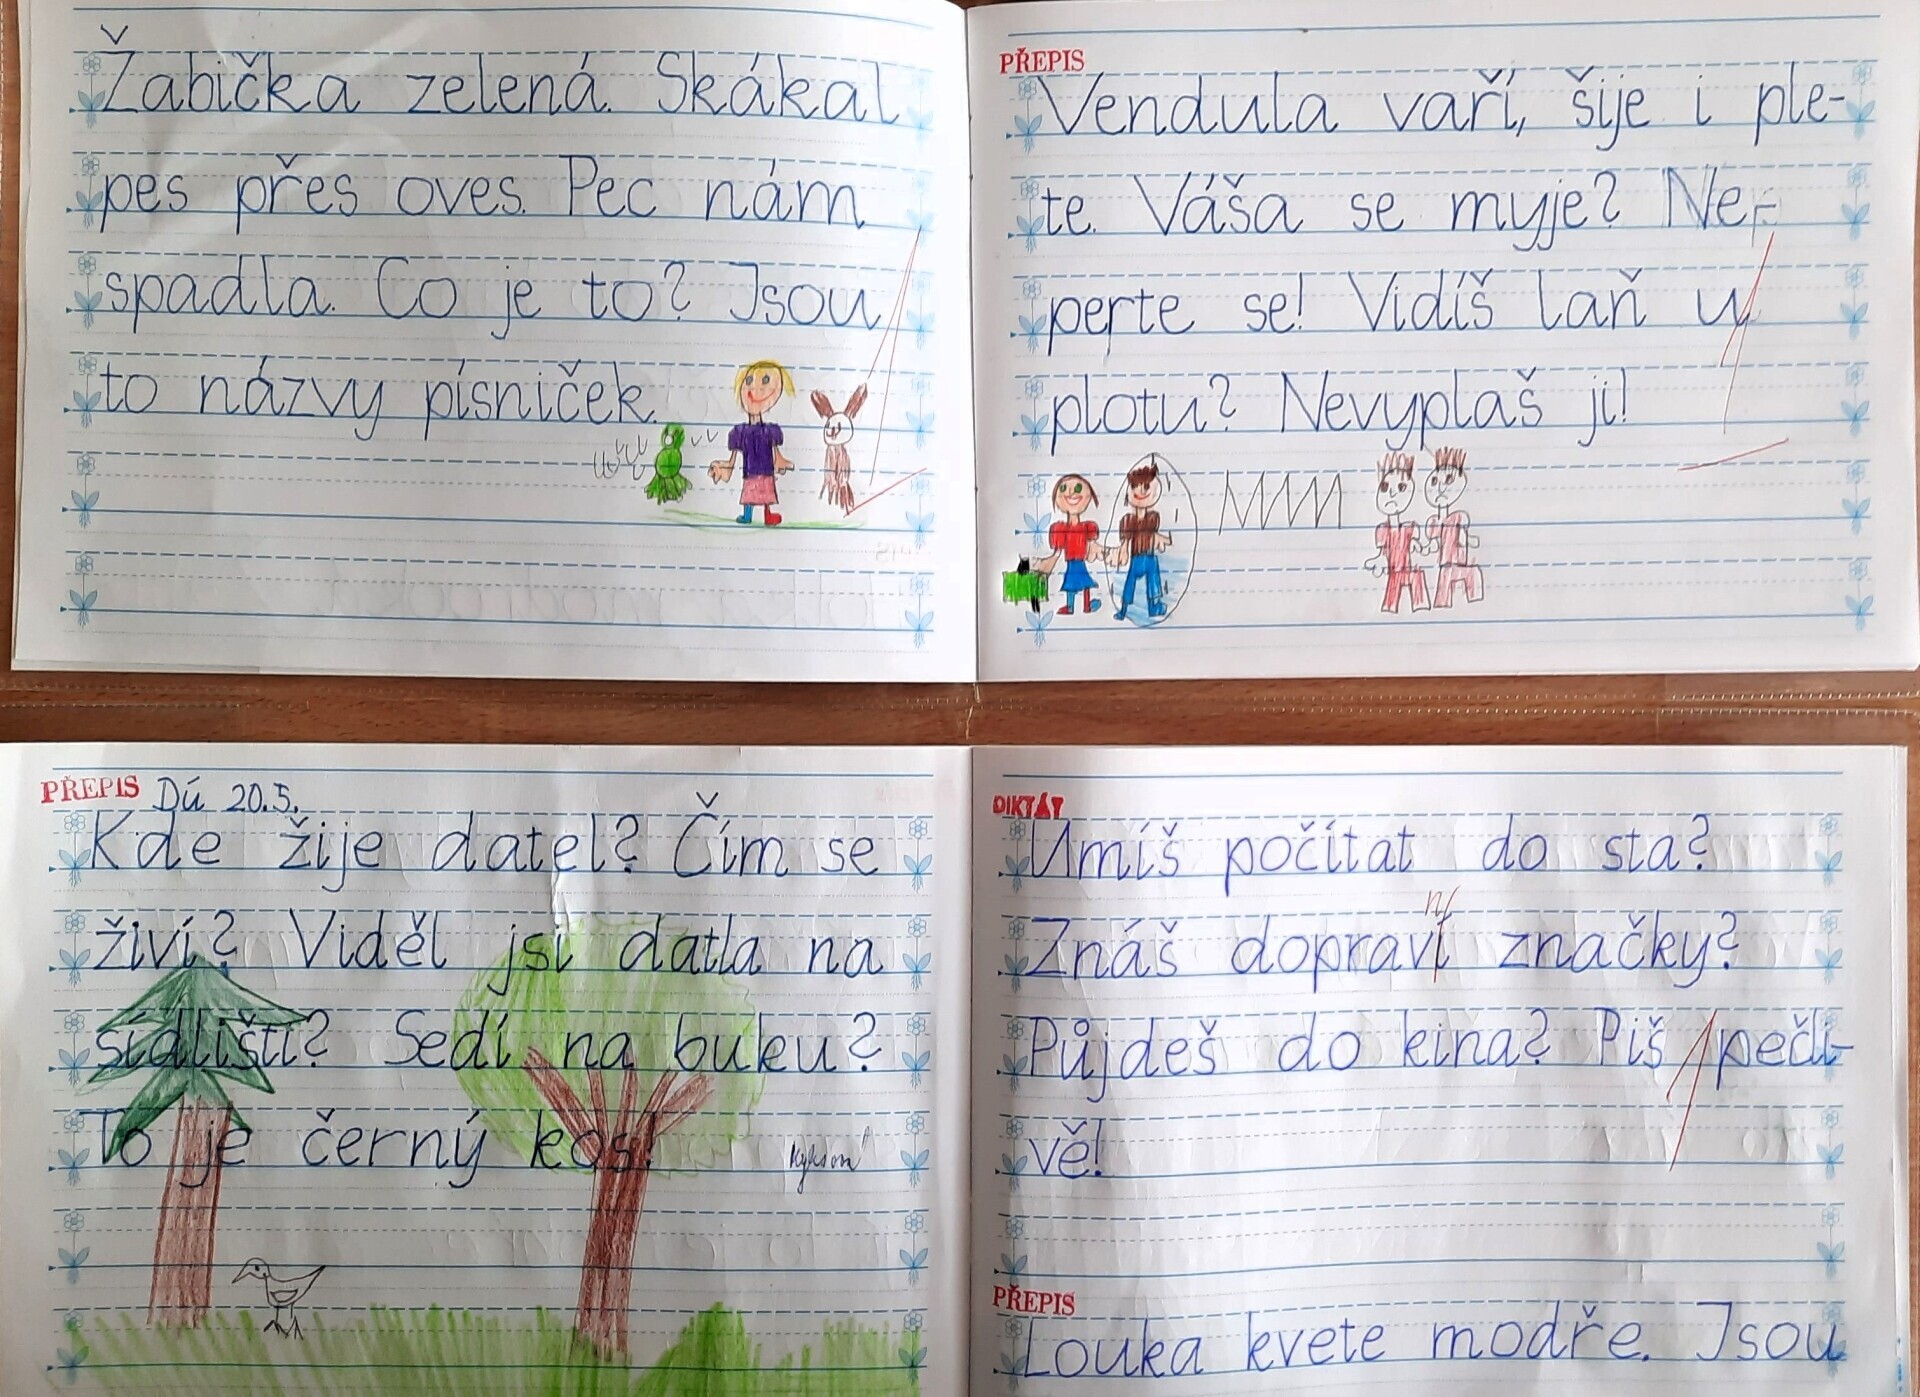 Žabička zelená. Skákal
pes přes oves. Pec nám
spadla. Co je to? Jsou
to názvy písniček.
PŘEPIS
Vendula vaří, šije i ple-
te. Váša se myje? Ne-
perte se! Vidíš laň u
plotu? Nevyplaš ji!
PŘEPIS Dú 20.5.
Kde žije datel? Čím se
živí? Viděl jsi datla na
sídlišti? Sedí na buku?
To je černý kos!
DIKTÁT
Umíš počítat do sta?
ní
Znáš dopraví značky?
Půjdeš do kina? Piš pečli-
vě!
PŘEPIS
Louka kvete modře. Jsou